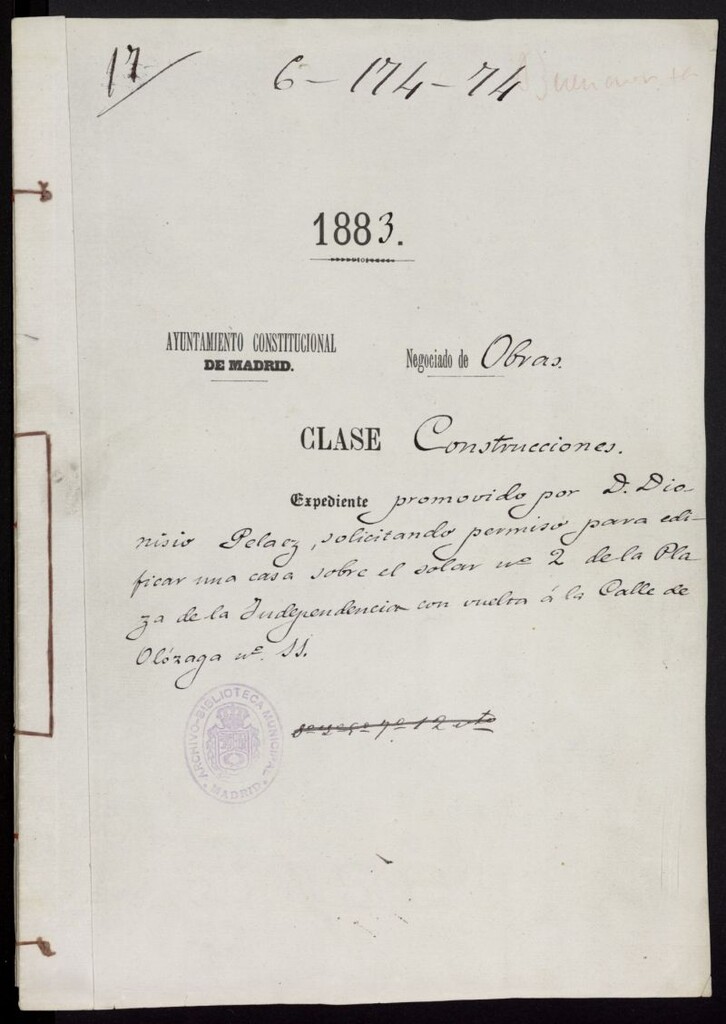 17
6-174-74
1883.
AYUNTAMIENTO CONSTITUCIONAL
DE MADRID.
Negociado de Obras.
CLASE Construcciones.
Expediente promovido por D. Dio-
nisio Pelaez, solicitando permiso para edi-
ficar una casa sobre el solar nº 2 de la Pla
za de la Independencia con vuelta á la Calle de
Olózaga nº. 11.
ARCHIVO-BIBLIOTECA MUNICIPAL
MADRID